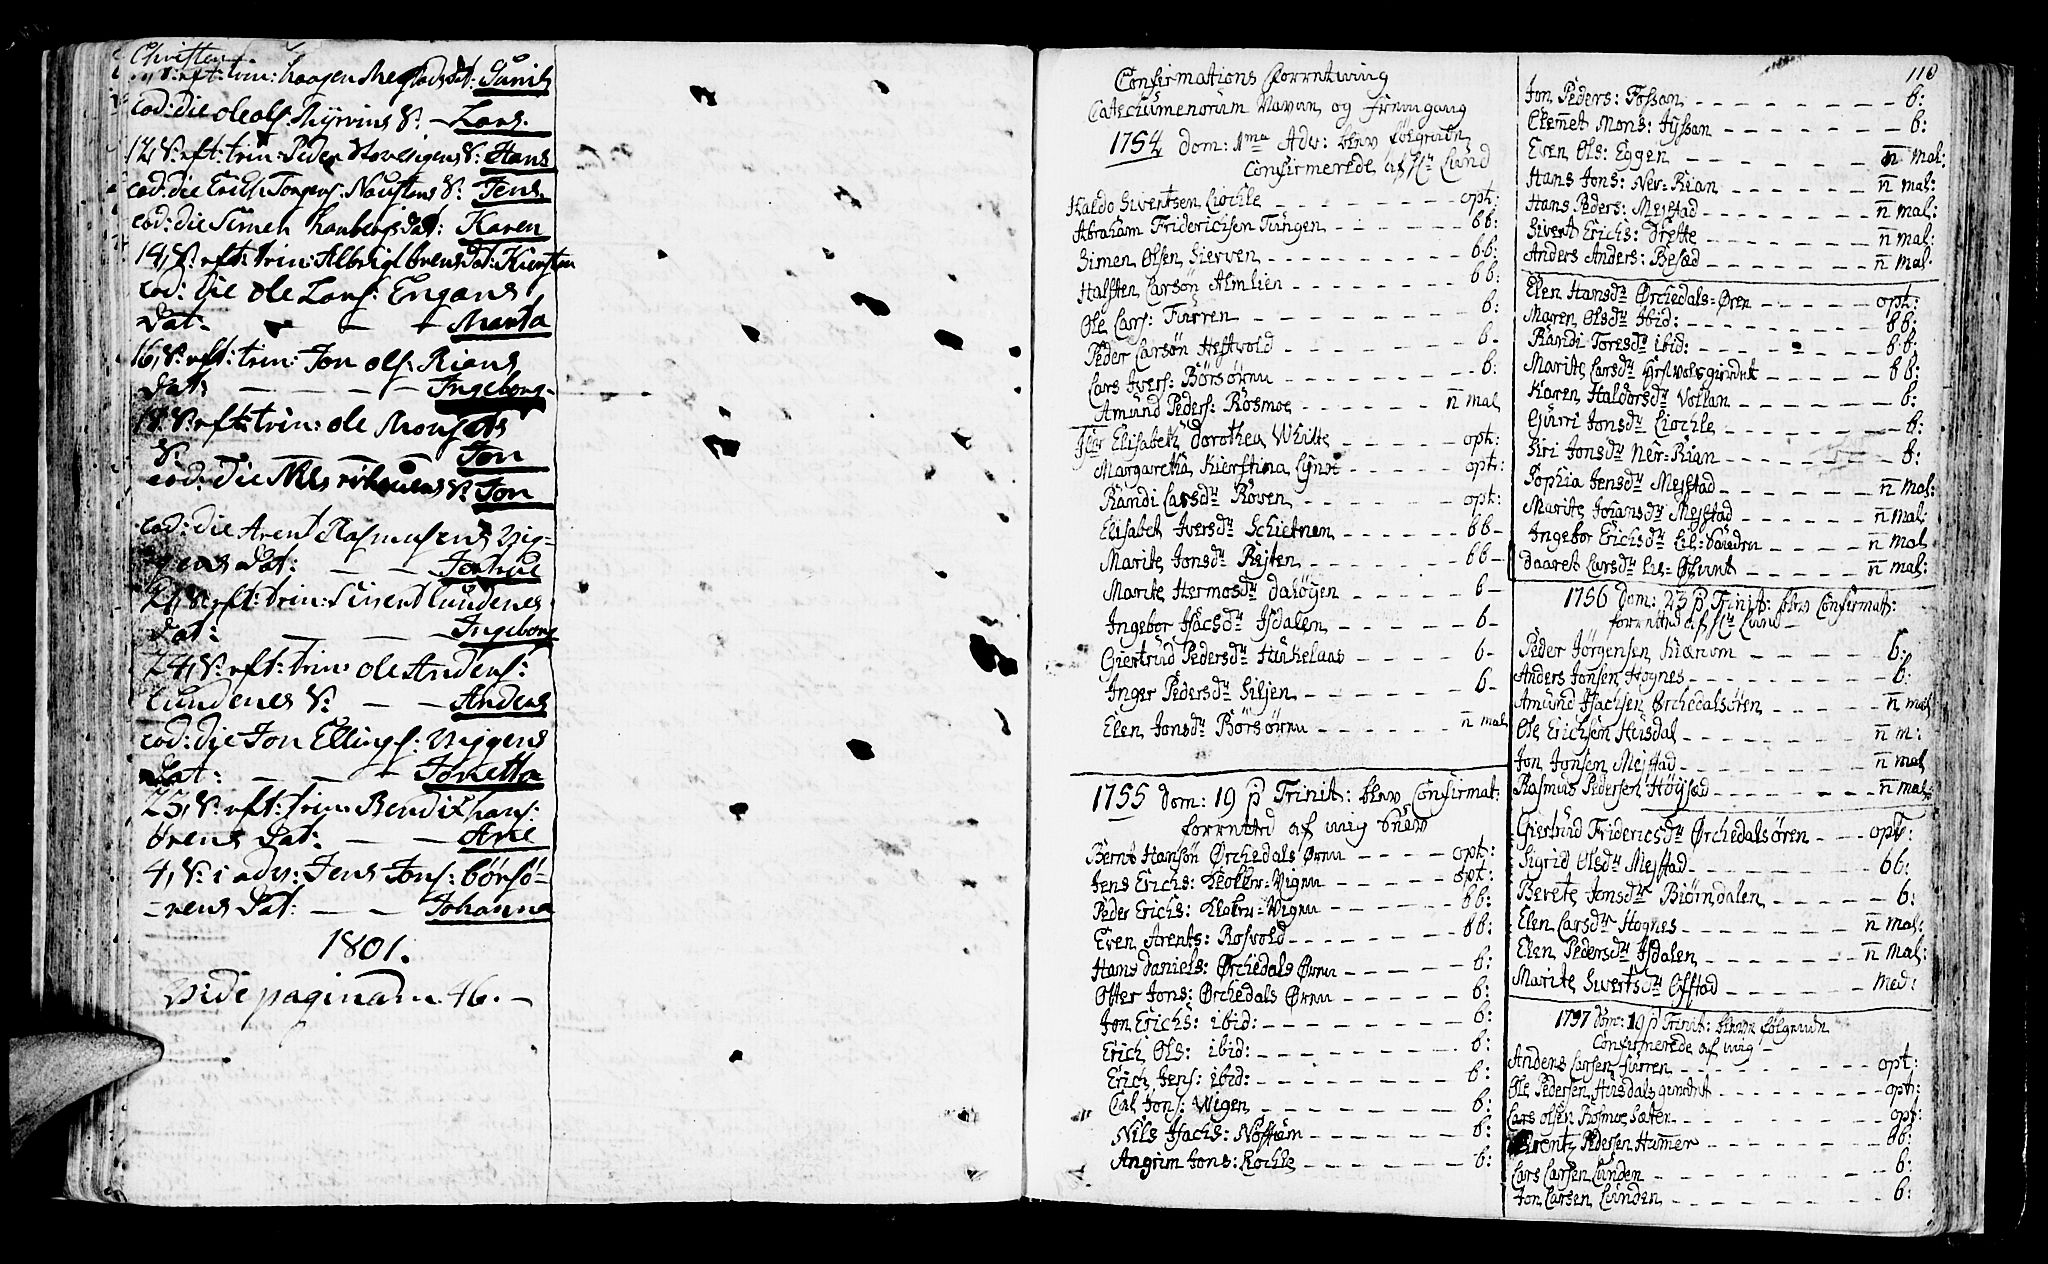 Christen
eft: trin: Haagen Megstads dat:
eod: die Ole Ols: Thyrvins S: Lars.
12 S: eft: trin: Peder S: Hans
eod: die Erich Jørgens: Naustens S: Jens.
eod: die Simen Dat: Karen
14, S: eft: trin: Dat: Kiersten
eod: die Ole Lars: Engans
Dat: - - - Marta
16, S: eft: trin: Jon Ols: Riens
Dat: - - - Ingeborg
S: eft: trin: Ole
S: - - - Jon
eod: die Nils S: Jon
eod: die Arent Rasmusens Vig-
gens Dat: - - -
21, S: eft: trin: Sivert Lundenes
Dat: - - - Ingeborg
24, S: eft: trin: Ole Anders:
Lundenes S: - - Anders
eod: die Jon Ellings: Viggens
Dat: - - - Jonetta
25, S: eft: trin: Bendix Hans:
Ørens Dat: - - Ane
4, S: i adv: Jens Jons: Børsø-
-rens Dat: - - Johanna
1801.
Vide paginam 46. -
Confirmations Forretning
Catechumenorum Navn og
1754 dom: 1ma Adv: blev følgende
Confirmerede af Hr Lund
Haldo Sivertsen Lochle - - - opt:
Abraham Friderichsen Tungen - - - bb:
Simen Olsen Sierven - - - bb:
Halsten Larsøn Almlien - - - bb:
Ole Lars: Furren - - - b:
Peder Larsøn Heftvold - - - b-
Lars Ivers: Børsørnn - - - b:
Amund Peders: Rosmoe - - - n mal
Elisabeth Dorothea White - - - opt:
Margaretha Kierstina Lynd - - - opt:
Randi Larsdr Roven - - - opt:
Elisabet Iversdr Schietnen - - - bb-
Marite Jonsdr Reiten - - - bb-
Marite Hermosdr Daløyen - - - b-
Ingebor Isacsdr Isdalen - - - b-
Giertrud Pedersdr - - - b-
Inger Pedersdr Siljen - - - b-
Elen Jonsdr Børsørnn - - - n mal
1755 Dom: 19 p Trinit: blev Confirmat:
forretted af mig
Bernt Hansøn Ørchedals Ørnn - - - opt:
Jens Erichs: Vignn - - - opt:
Peder Erichs: Vignn - - - bb:
Even Arents: Rosvold - - - bb:
Hans Daniels: Ørchedals Ørnn - - - b:
Otter Jons: Ørchedals Ørnn - - - b:
Jon Erichs: ibid: - - - b:
Erich Ols: ibid: - - - b:
Erich Jens: ibid: - - - b:
Jons: Wigen - - - b:
Nils Isachs: - - - b:
Angrim Jons: - - - b:
110
Jon Peders: Fossan - - - b:
Clemet Mons: - - - b:
Even Ols: Eggen - - - n mal:
Hans Jons: Ner-Rian - - - n mal:
Hans Peders: Mejstad - - - n mal:
Sivert Erichs: - - - n mal:
Anders Anders: - - - n mal:
Elen Hansdr Ørchedals-Øren - - - opt:
Maren Olsdr ibid: - - - bb:
Randi Toresdr ibid: - - - bb:
Marite Larsdr - - - bb:
Karen Haldorsdr Vollan - - - b:
Gurri Jonsdr Lochle - - - b:
Siri Jonsdr Ner-Rian - - - b:
Sophia Jensdr Mejstad - - - n mal:
Marite Johansdr Mejstad - - - n mal:
Ingebor Erichsdr - - - n mal
Daaret Larsdr - - - n mal:
1756 Dom: 23 p Trinit: blev Confirmat:
forretted af Hr Lund
Peder Jørgensen - - - b:
Anders Jonsen Hognes - - - b:
Amund Isachsen Ørchedalsøren - - - n mal
Ole Erichsen Husdal - - - n m:
Jon Jonsen Mejstad - - - n mal
Rasmus Pedersen - - - n mal:
Giertrud Fridericsdr Ørchedalsøren - - - opt:
Sigrid Olsdr Mejstad - - - bb:
Berete Jonsdr Biørndalen - - - b:
Elen Larsdr Hognes - - - n mal:
Elen Pedersdr Isdalen - - - n mal:
Marite Sivertsdr - - - med:
1757 Dom: 19 p Trinit: blevne følgende
Confirmerede af mig -
Anders Larsen Furren - - - opt:
Ole Pedersen - - - opt:
Lars Olsen Rosmoe Sæter - - - opt:
Pedersen Humer - - - bb:
Lars Larsen Lunden - - - b:
Jon Larsen Lunden - - - b: